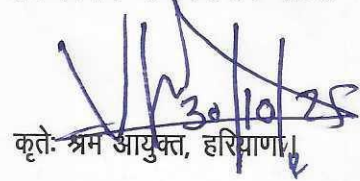 30/10/25
कृतेः श्रम आयुक्त, हरियाणा।